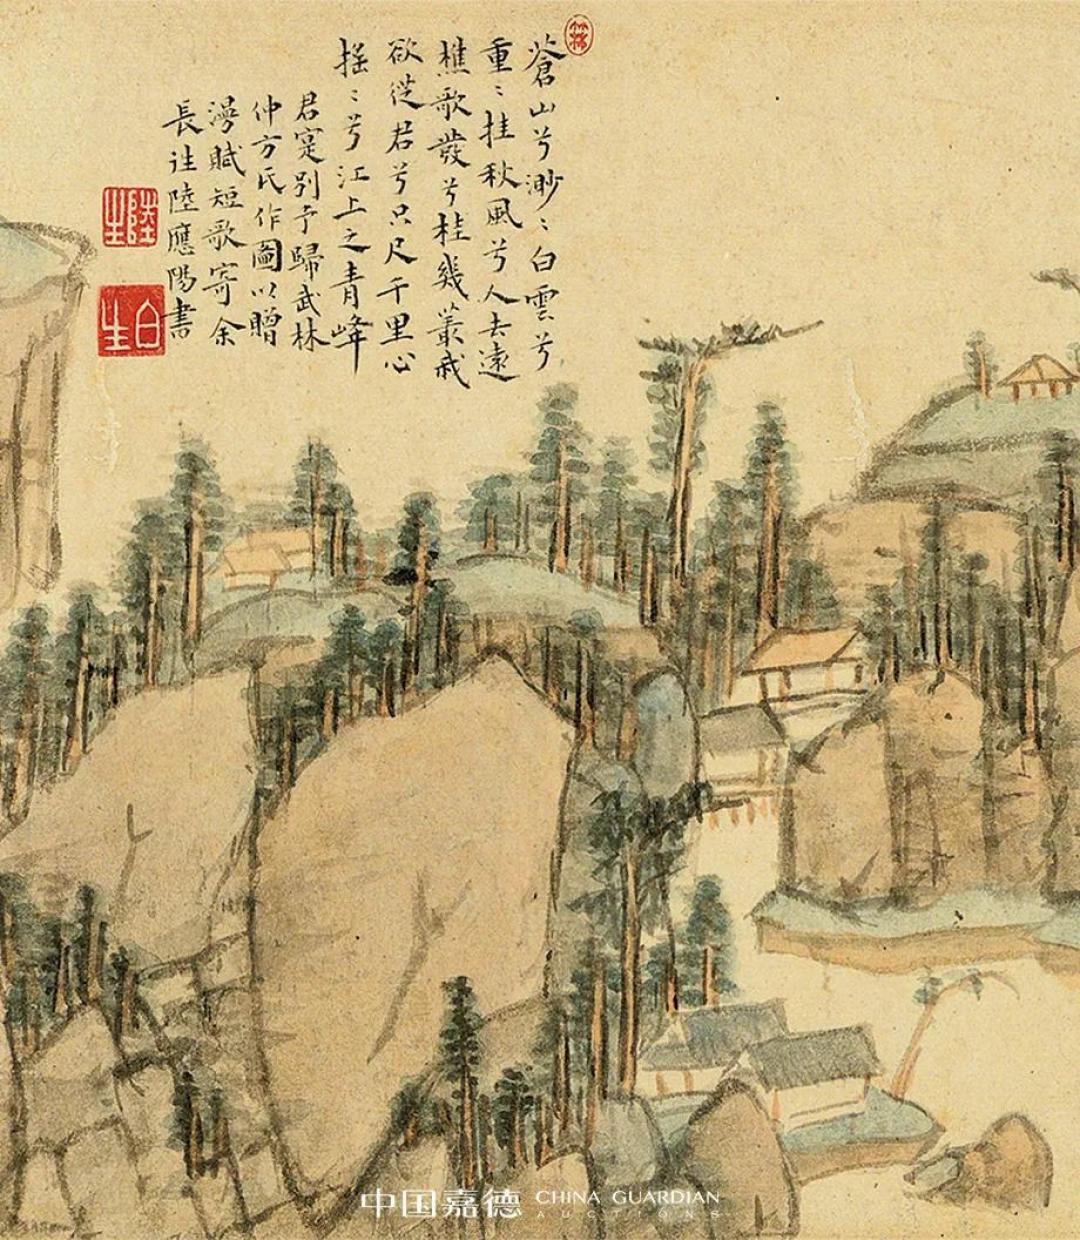 蒼山兮渺〻白雲兮
重〻挂秋風兮人去遠
樵歌發兮桂幾叢我
欲從君兮只尺千里心
摇〻兮江上之青峰
君寔別予歸武林
仲方氏作圖以贈
漫賦短歌寄余
長往陸應陽書
陸生
白生
中国嘉德 CHINA GUARDIAN
AUCTIONS